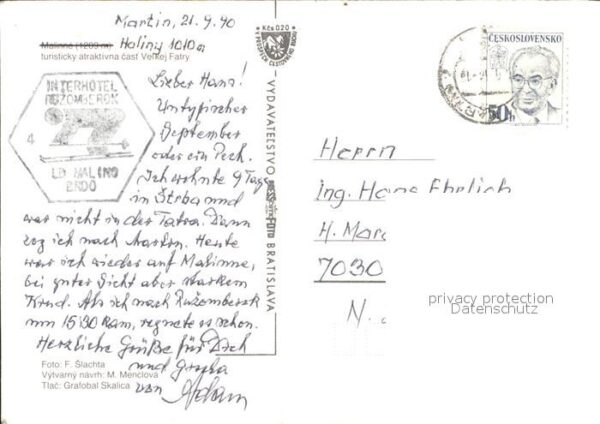 Martin, 21.9.90
Malinné (1209 m) Haliny 1010 m
turisticky atraktívna časť Veľkej Fatry
Kčs 0,20
ČESKOSLOVENSKO
50h
INTERHOTEL
RUŽOMBEROK
4
LD MALINO
BRDO
Lieber Hans!
Untypischer
September
oder ein Pech.
Ich wohnte 9 Tage
in Štrba und
war nicht in der Tatra. Dann
zog ich nach Martin. Heute
war ich wieder auf Malinne,
bei guter Sicht aber starkem
Als ich nach Ružomberok
um 15:30 kam, regnete es schon.
Herzliche Grüße für Dich
und
von Adam
Foto: F. Šlachta
Výtvarný návrh: M. Menclová
Tlač: Grafobal Skalica
VYDAVATEĽSTVO PRESSFOTO BRATISLAVA
Herrn
Ing. Hans Ehrlich
H. Marc
7030
N.
privacy protection
Datenschutz